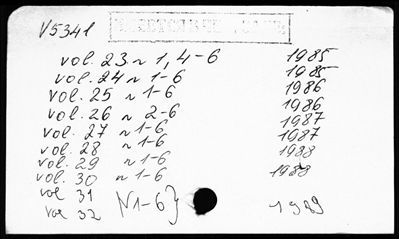 V5341
vol. 23 N 1, 4-6 1985
vol. 24 N 1-6 1985
vol. 25 N 1-6 1986
vol. 26 N 2-6 1986
vol. 27 N 1-6 1987
vol. 28 N 1-6 1987
vol. 29 N 1-6 1988
vol. 30 N 1-6 1988
vol 31
vol 32 N1-6} 1989